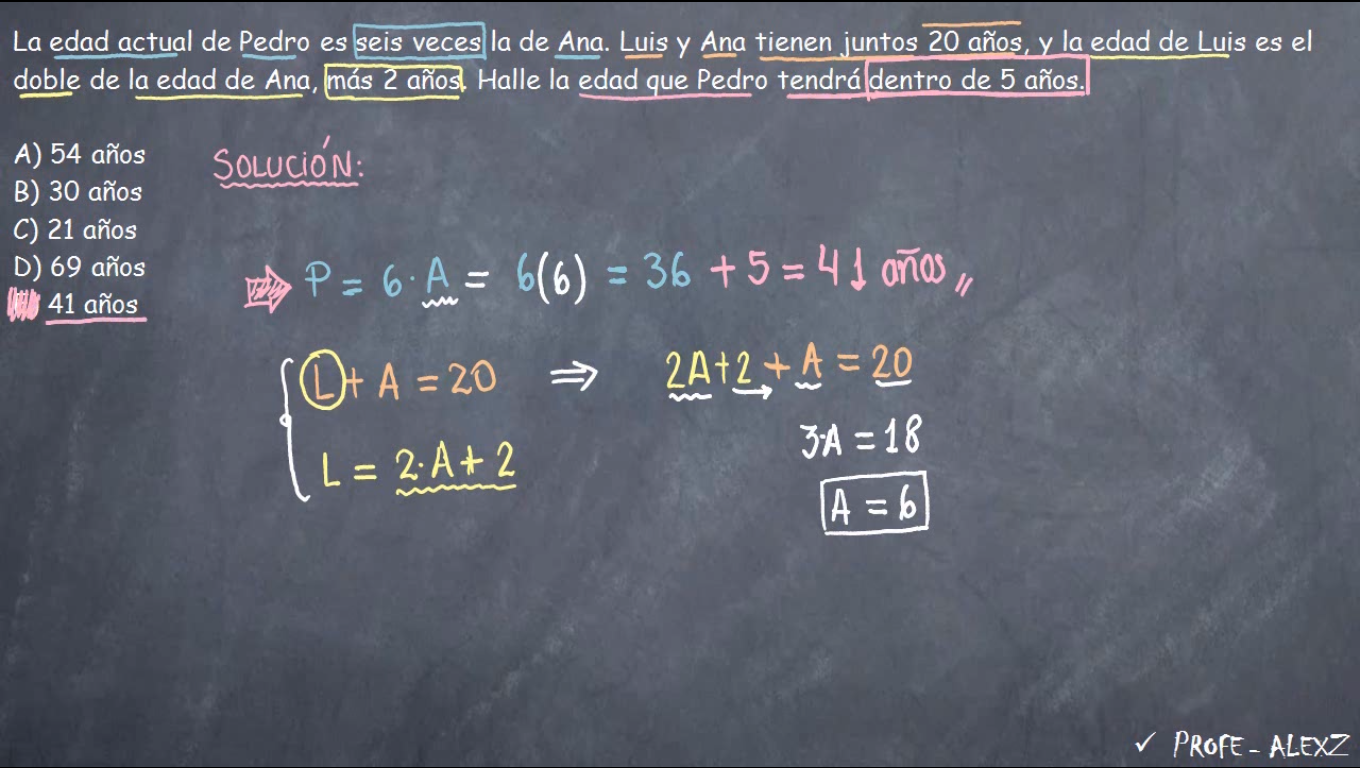 La edad actual de Pedro es seis veces la de Ana. Luis y Ana tienen juntos 20 años, y la edad de Luis es el
doble de la edad de Ana, más 2 años. Halle la edad que Pedro tendrá dentro de 5 años.
A) 54 años
B) 30 años
C) 21 años
D) 69 años
41 años
SOLUCIÓN:
P = 6·A = 6(6) = 36 + 5 = 41 años
L + A = 20 ⇒ 2A+2 + A = 20
3·A = 18
L = 2·A + 2
A = 6
✓ PROFE - ALEXZ